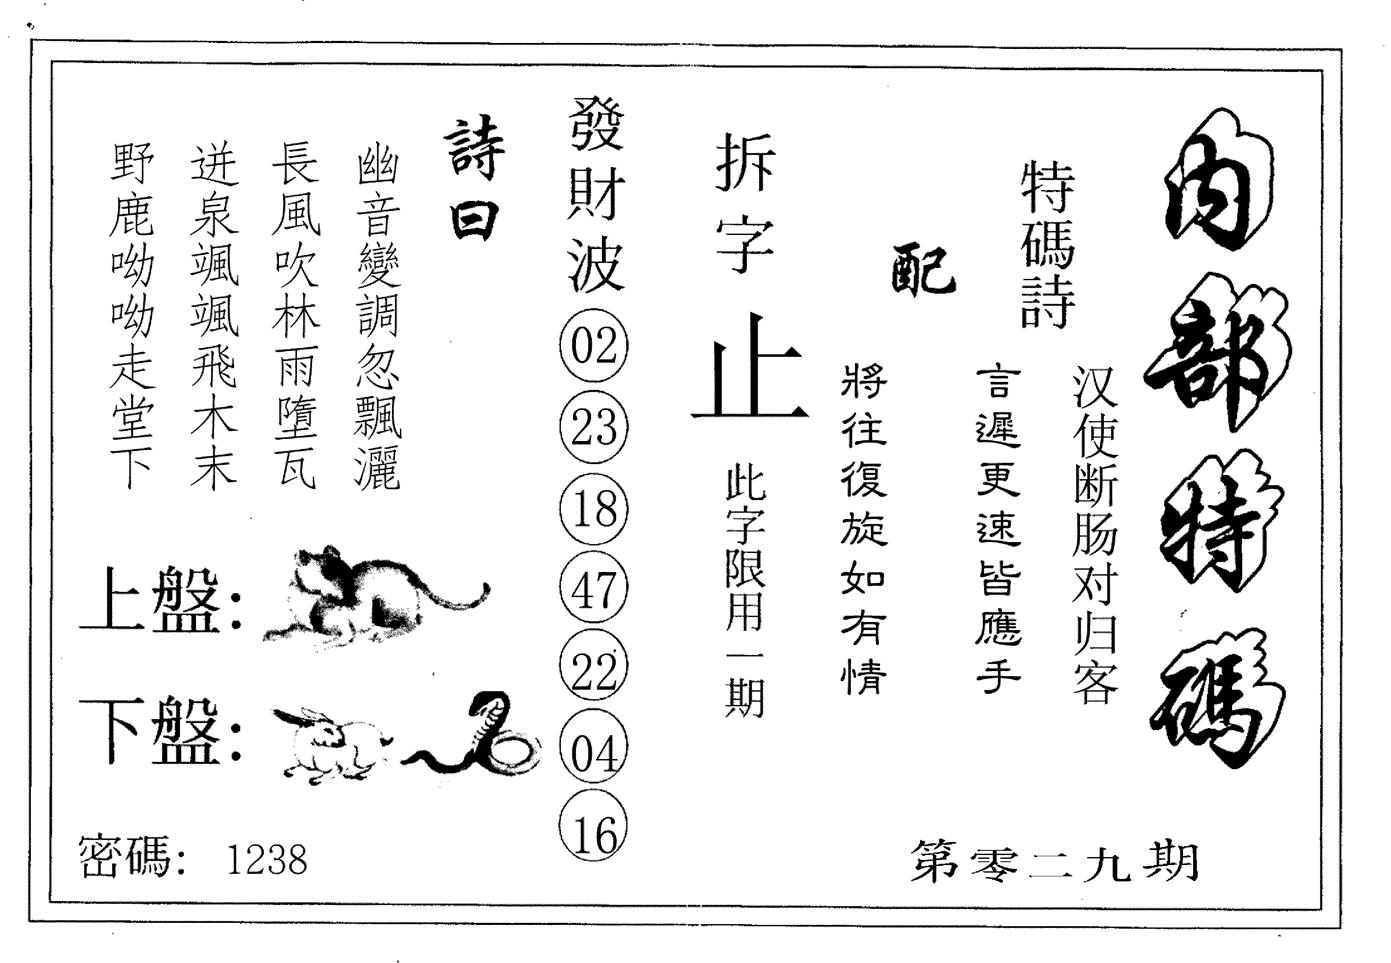 內部特碼
特碼詩
汉使断肠对归客
言遲更速皆應手
配
將往復旋如有情
拆字
止
此字限用一期
發財波
02
23
18
47
22
04
16
詩曰
幽音變調忽飄灑
長風吹林雨墮瓦
迸泉颯颯飛木末
野鹿呦呦走堂下
上盤：
下盤：
密碼： 1238
第零二九期